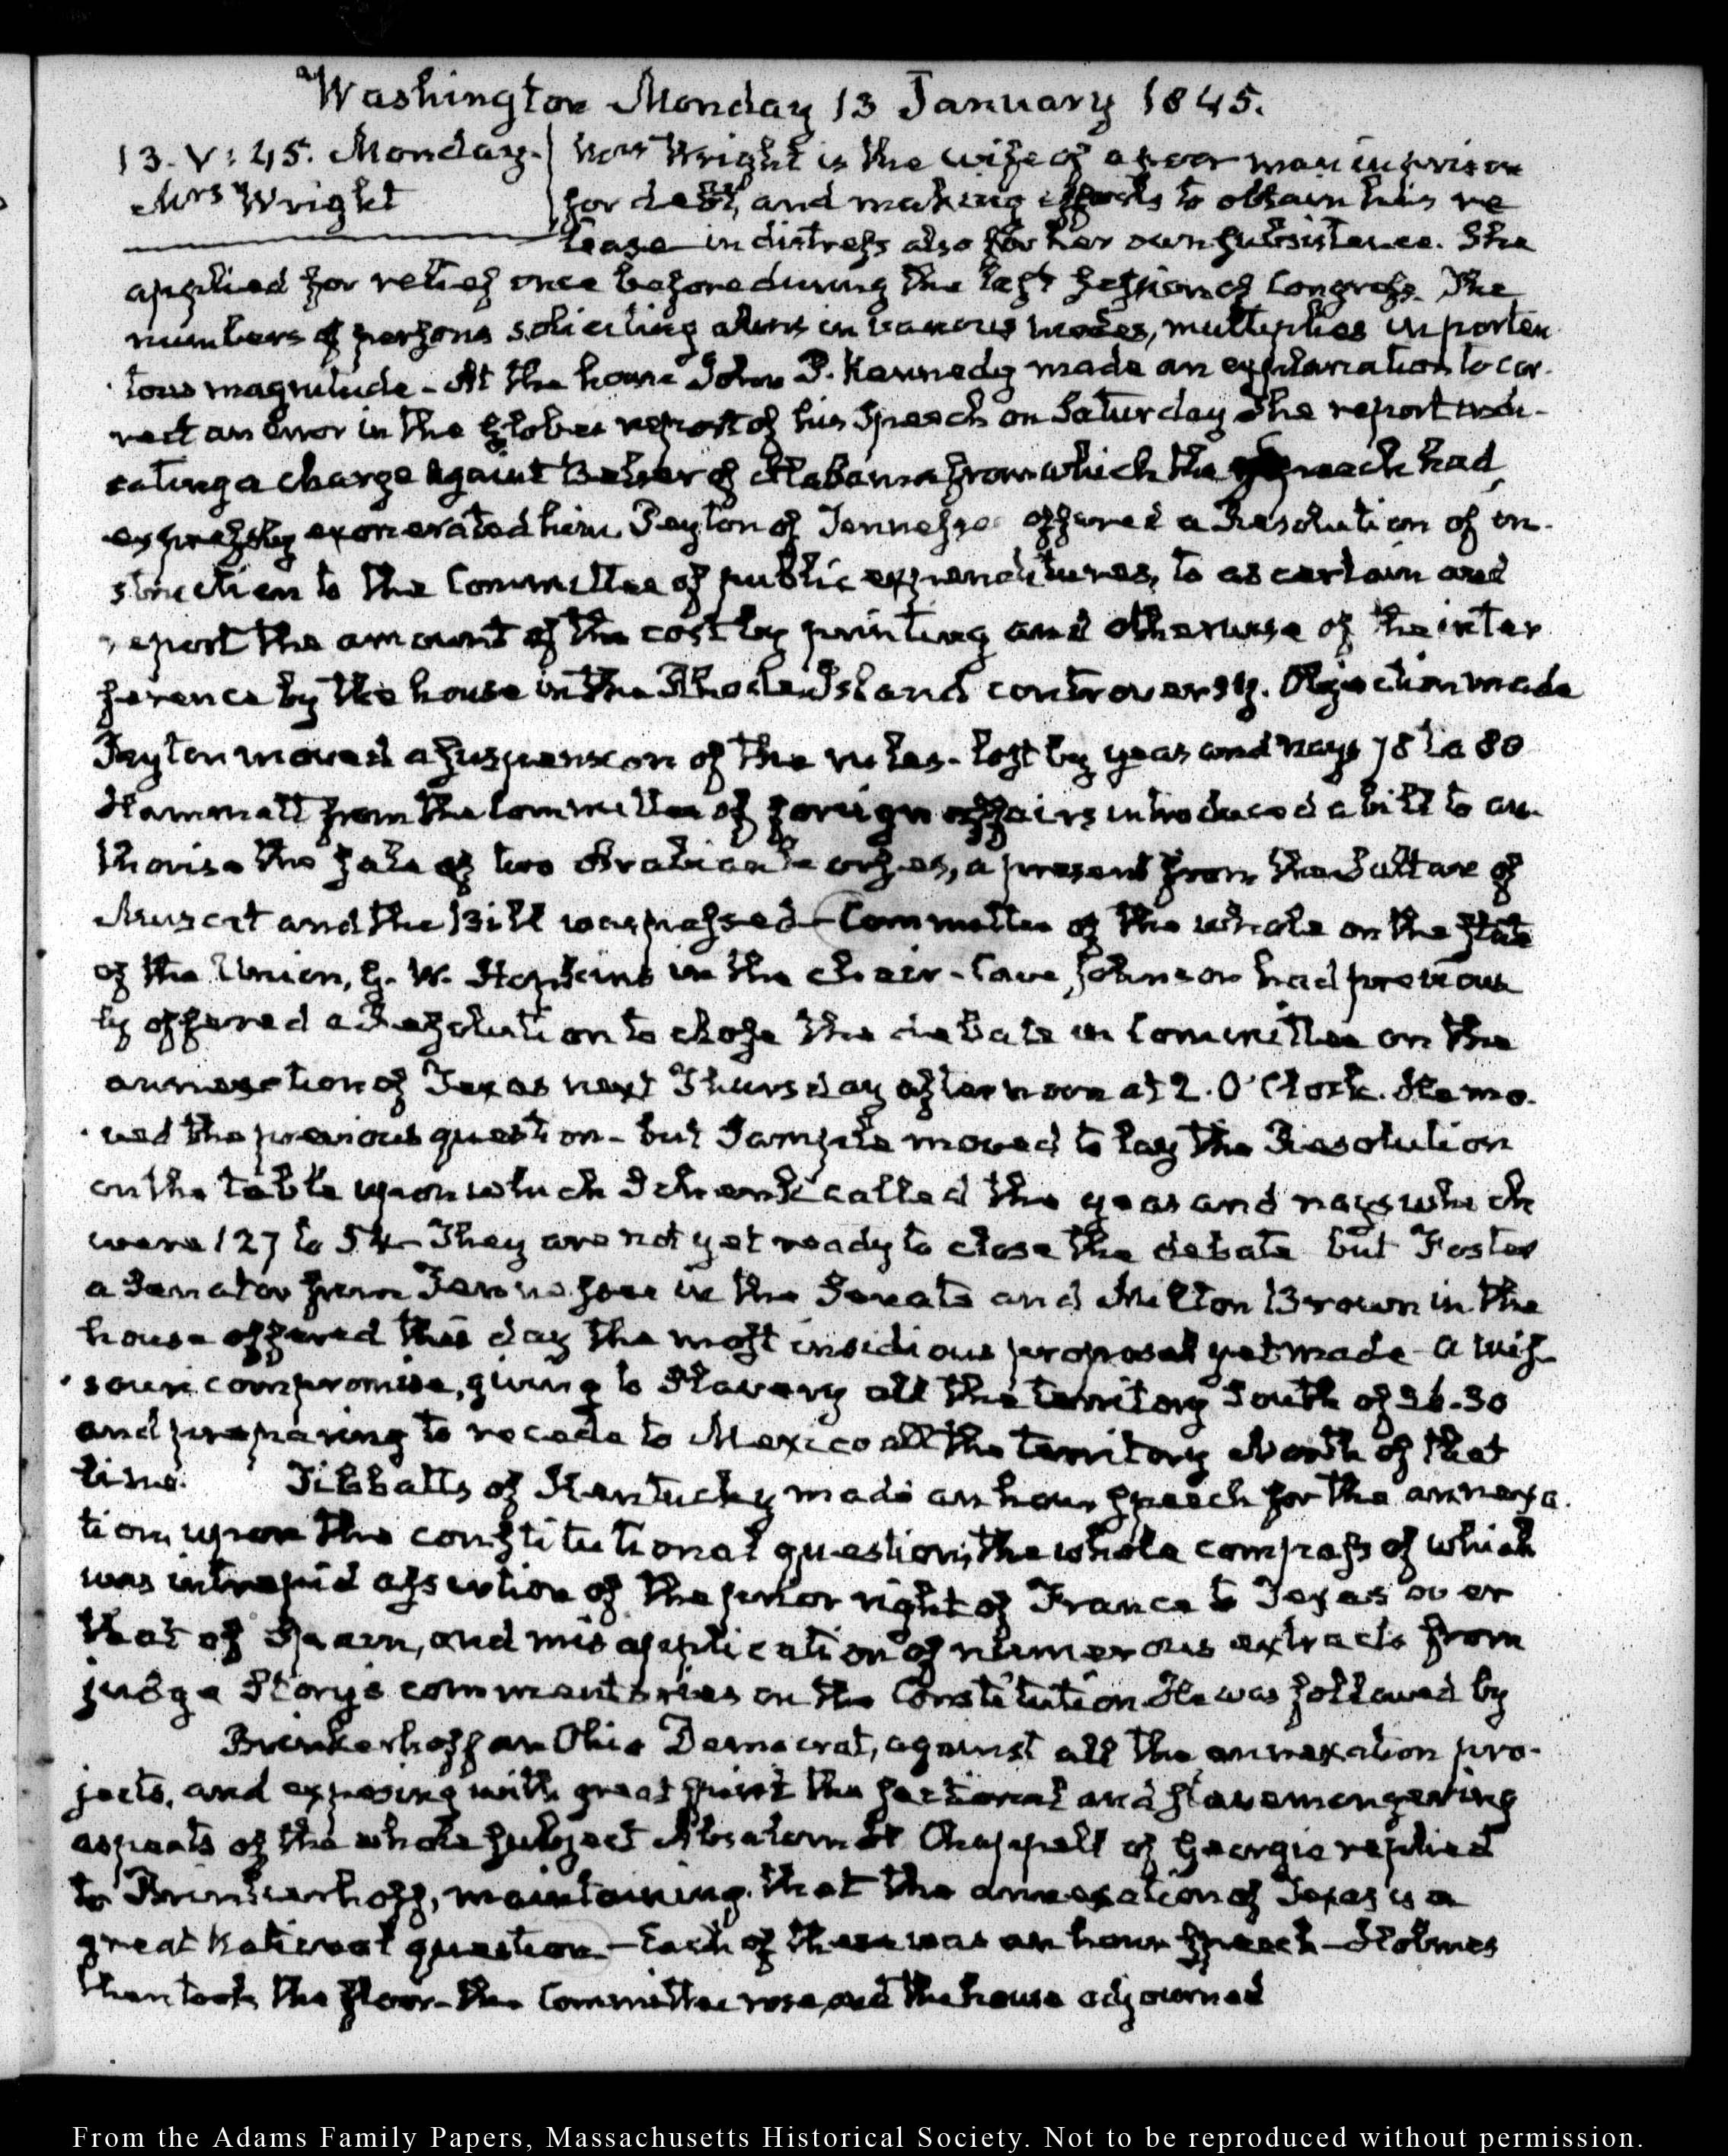 Washington Monday 13 January 1845.
13. V: 45. Monday.
Mrs Wright
Mrs Wright is the wife of a poor man in prison
for debt, and making efforts to obtain his re
lease in distress also for her own subsistence. She
applied for relief once before during the last session of Congress. The
numbers of persons soliciting alms in various modes, multiplies in porten
tous magnitude - At the house John P. Kennedy made an explanation to cor-
rect an error in the Globes report of his Speech on Saturday The report indi-
cating a charge against Belser of Alabama from which the speech had
expressly exonerated him. Peyton of Tennessee offered a Resolution of in-
struction to the Committee of public expenditures, to ascertain and
report the amount of the cost by printing and otherwise of the inter
ference by the house in the Rhode Island controversy. Objection made
Peyton moved a suspension of the rules - lost by yeas and nays 78 to 80
Hammett from the Committee of foreign affairs introduced a bill to au-
thorise the sale of two Arabian horses, a present from the Sultan of
Muscat and the Bill was passed - Committee of the whole on the state
of the Union, G. W. Hopkins in the chair - Cave Johnson had previous
ly offered a Resolution to close the debate in Committee on the
annexation of Texas next Thursday afternoon at 2. O'Clock. He mo-
ved the previous question - but Sample moved to lay the Resolution
on the table upon which Schenk called the yeas and nays which
were 127 to 54 - They are not yet ready to close the debate but Foster
a Senator from Tennessee in the Senate and Milton Brown in the
house offered this day the most insidious proposal yet made - a Mis-
souri compromise, giving to Slavery all the territory South of 36-30
and preparing to recede to Mexico all the territory North of that
line. Tibbatts of Kentucky made an hour speech for the annexa-
tion, upon the constitutional question, the whole compass of which
was intrepid assertion of the prior right of France to Texas over
that of Spain, and misapplication of numerous extracts from
judge Story's commentaries on the Constitution He was followed by
Brinkerhoff an Ohio Democrat, against all the annexation pro-
jects, and exposing with great spirit the sectional and slavemongering
aspects of the whole subject Absalom H Chappell of Georgia replied
to Brinkerhoff, maintaining that the annexation of Texas is a
great National question - Each of these was an hour speech - Holmes
then took the floor - the Committee rose, and the house adjourned
From the Adams Family Papers, Massachusetts Historical Society. Not to be reproduced without permission.